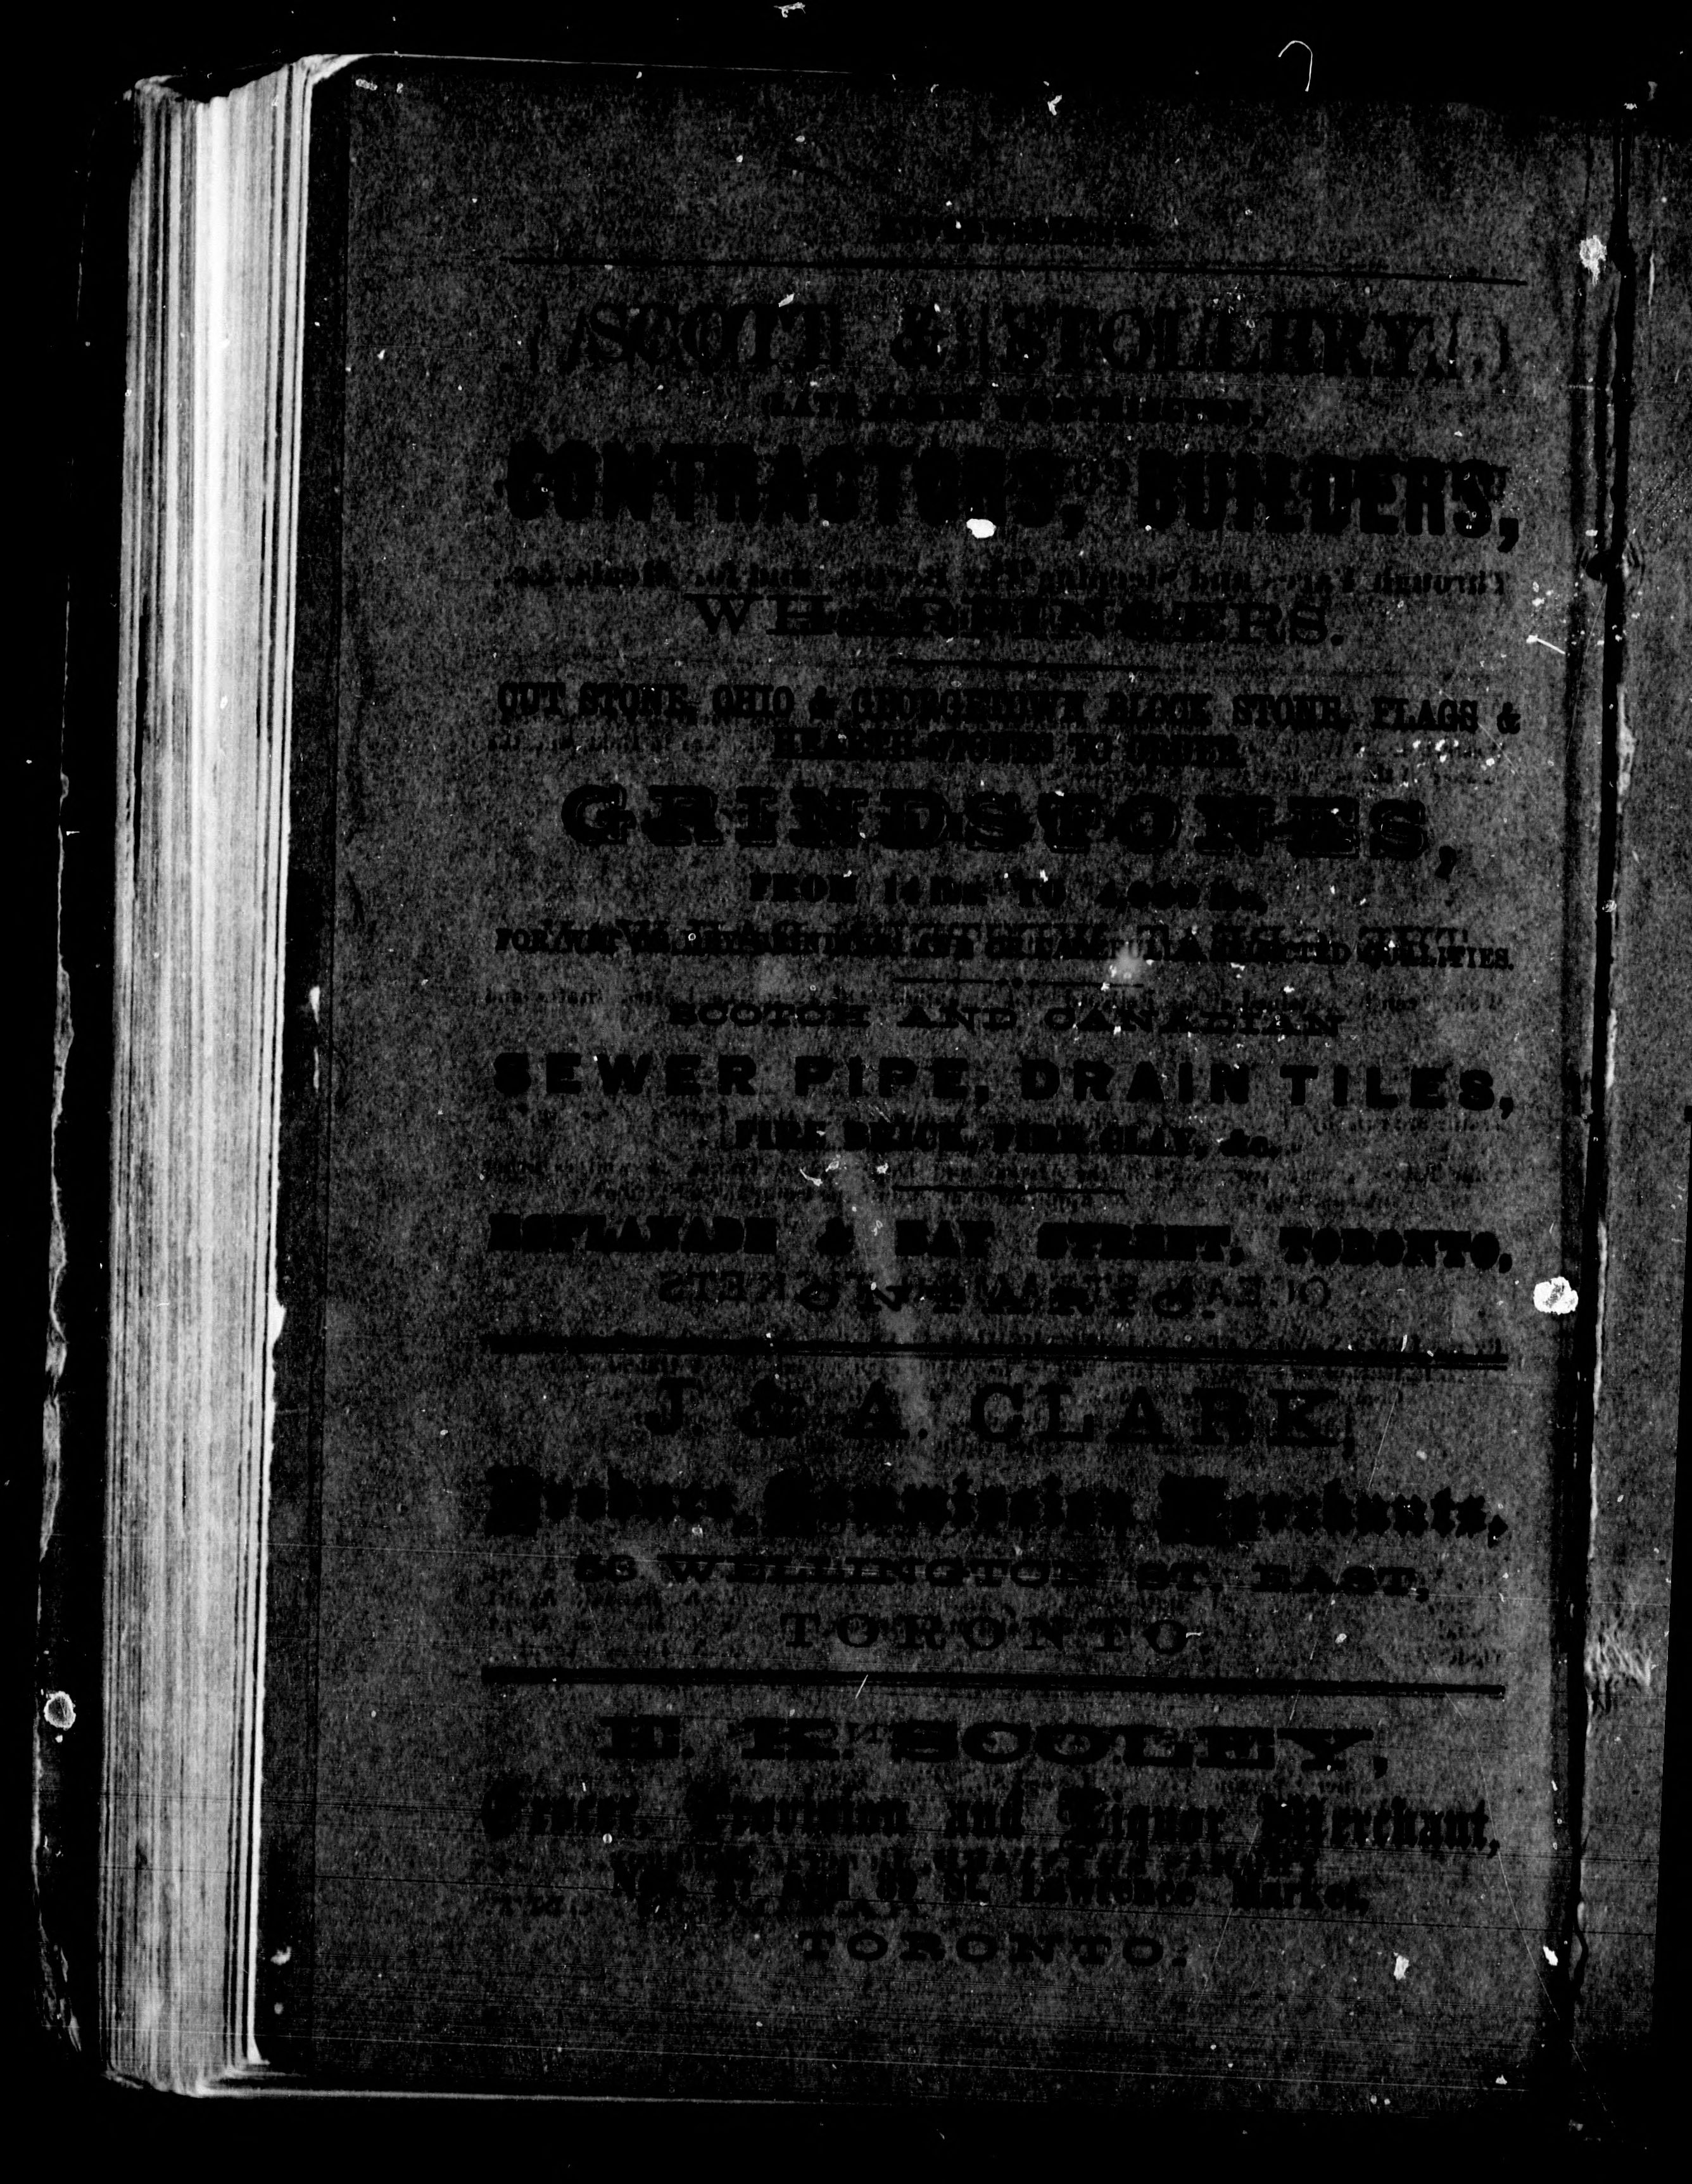 ADVERTISEMENTS.
SCOTT & STOLLERY,
LATE JAMES WORTHINGTON,
CONTRACTORS, BUILDERS,
WHARFINGERS.
CUT STONE, OHIO & GEORGETOWN BLOCK STONE, FLAGS &
HEARTH STONES TO ORDER.
GRINDSTONES,
FROM TO
FOR SELECTED QUALITIES.
SCOTCH AND CANADIAN
SEWER PIPE, DRAIN TILES,
FIRE BRICK, FIRE CLAY, &c.
ESPLANADE & BAY STREET, TORONTO,
ONTARIO.
J. & A. CLARK,
Produce, Commission Merchants,
WELLINGTON ST. EAST,
TORONTO.
E. K. SCOLEY,
Grocer, Provision and Liquor Merchant,
St. Lawrence Market,
TORONTO.